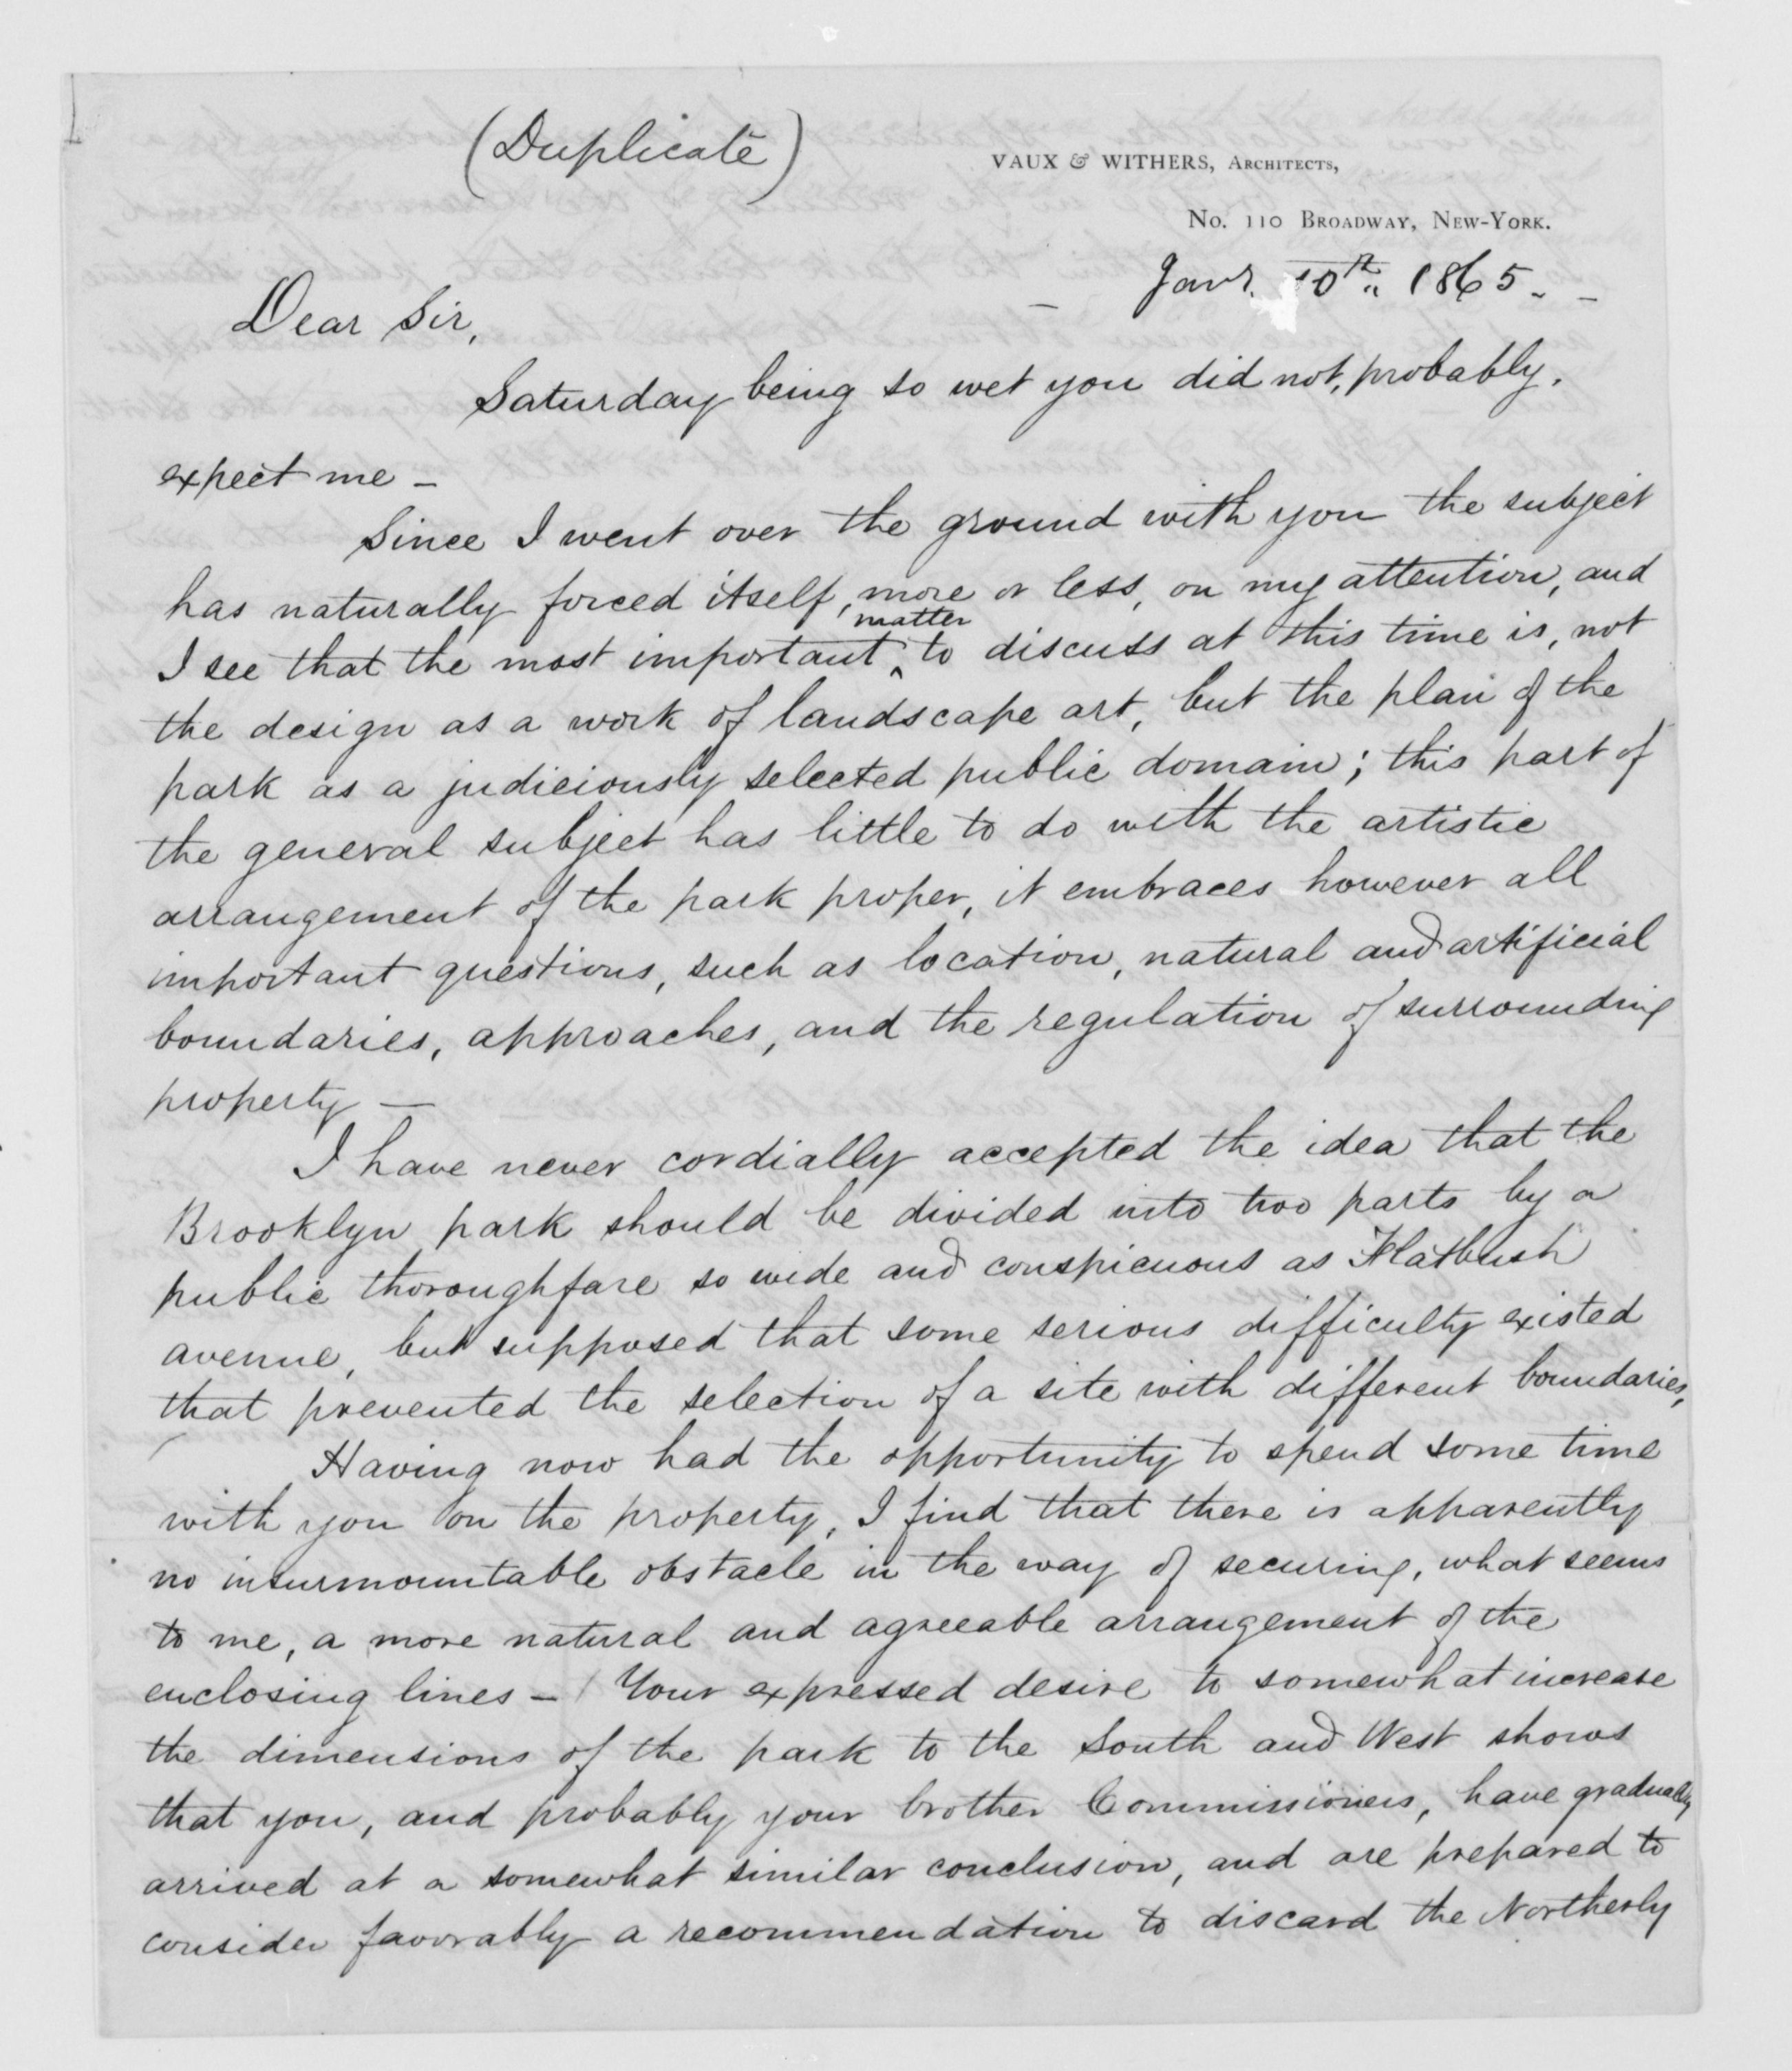 (Duplicate)
VAUX & WITHERS, Architects,
No. 110 Broadway, New-York.
Jany. 10th. 1865. -
Dear Sir,
Saturday being so wet you did not, probably,
expect me -
Since I went over the ground with you the subject
has naturally forced itself, more or less, on my attention, and
matter
I see that the most important ‸ to discuss at this time is, not
the design as a work of landscape art, but the plan of the
park as a judiciously selected public domain; this part of
the general subject has little to do with the artistic
arrangement of the park proper, it embraces however all
important questions, such as location, natural and artificial
boundaries, approaches, and the regulation of surrounding
property -
I have never cordially accepted the idea that the
Brooklyn park should be divided into two parts by a
public thoroughfare so wide and conspicuous as Flatbush
avenue, but supposed that some serious difficulty existed
that prevented the selection of a site with different boundaries,
Having now had the opportunity to spend some time
with you on the property, I find that there is apparently
no insurmountable obstacle in the way of securing, what seems
to me, a more natural and agreeable arrangement of the
enclosing lines - / Your expressed desire to somewhat increase
the dimensions of the park to the South and West shows
that you, and probably your brother Commissioners, have gradually
arrived at a somewhat similar conclusion, and are prepared to
consider favorably a recommendation to discard the Northerly